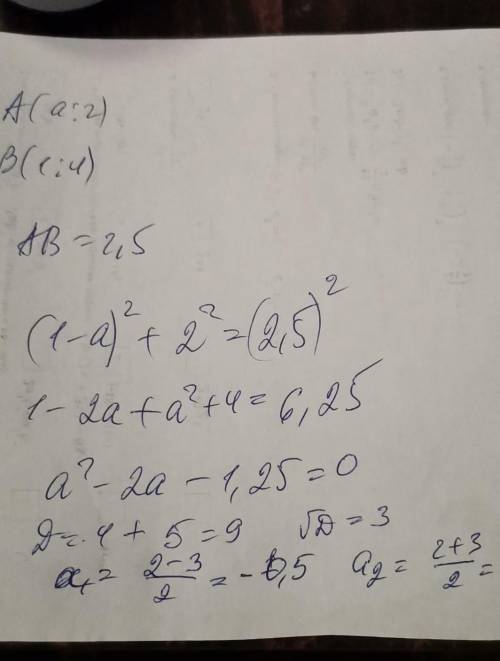 A(a;2)
B(1;4)
AB = 2,5
(1-a)² + 2² = (2,5)²
1 - 2a + a² + 4 = 6,25
a² - 2a - 1,25 = 0
D = 4 + 5 = 9 √D = 3
a₁ = (2-3)/2 = -0,5 a₂ = (2+3)/2 =